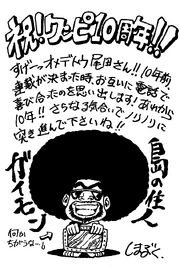 祝!ワンピ10周年!!
すげーッオメデトウ尾田さん!!10年前、
連載が決まった時、お互いに電話で
喜び合ったのを思い出します!あれから
10年!!さらなる気合いでノリノリに
突き進んで下さいね!!
島の住人
ガイモン
何かちがうな…
しまぶく